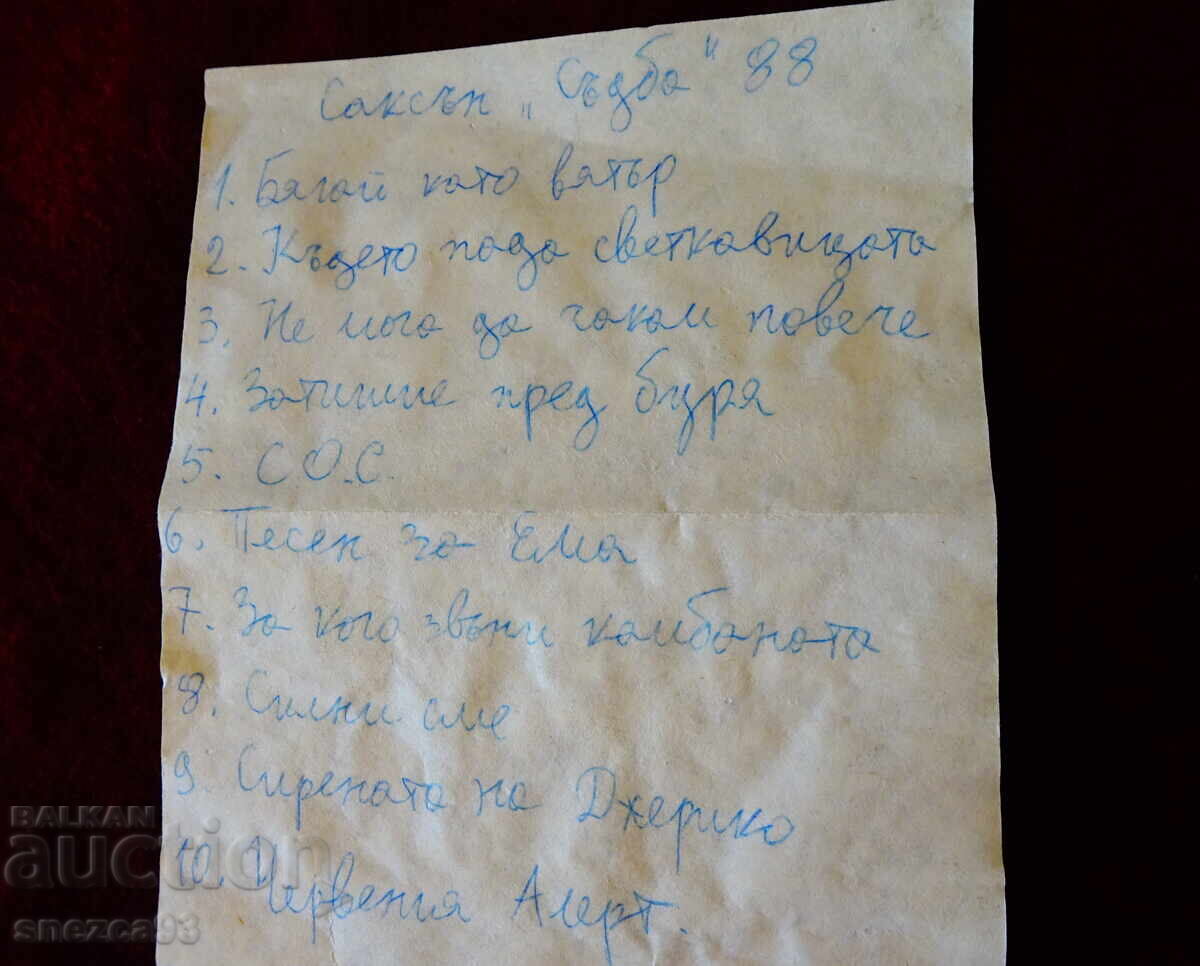 Саксън „Съдба" 88
1. Бягай като вятър
2. Където пада светкавицата
3. Не мога да чакам повече
4. Затишие пред буря
5. С.О.С.
6. Песен за Ема
7. За кого звъни камбаната
8. Силни сме
9. Сирената на Джерико
10. Червения Алерт.
BALKAN
auction
snezca93